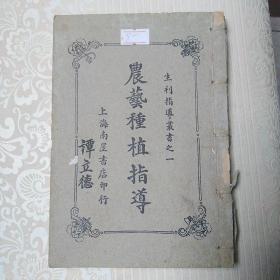 生利指導叢書之一
農藝種植指導
上海南星書店印行
譚立德